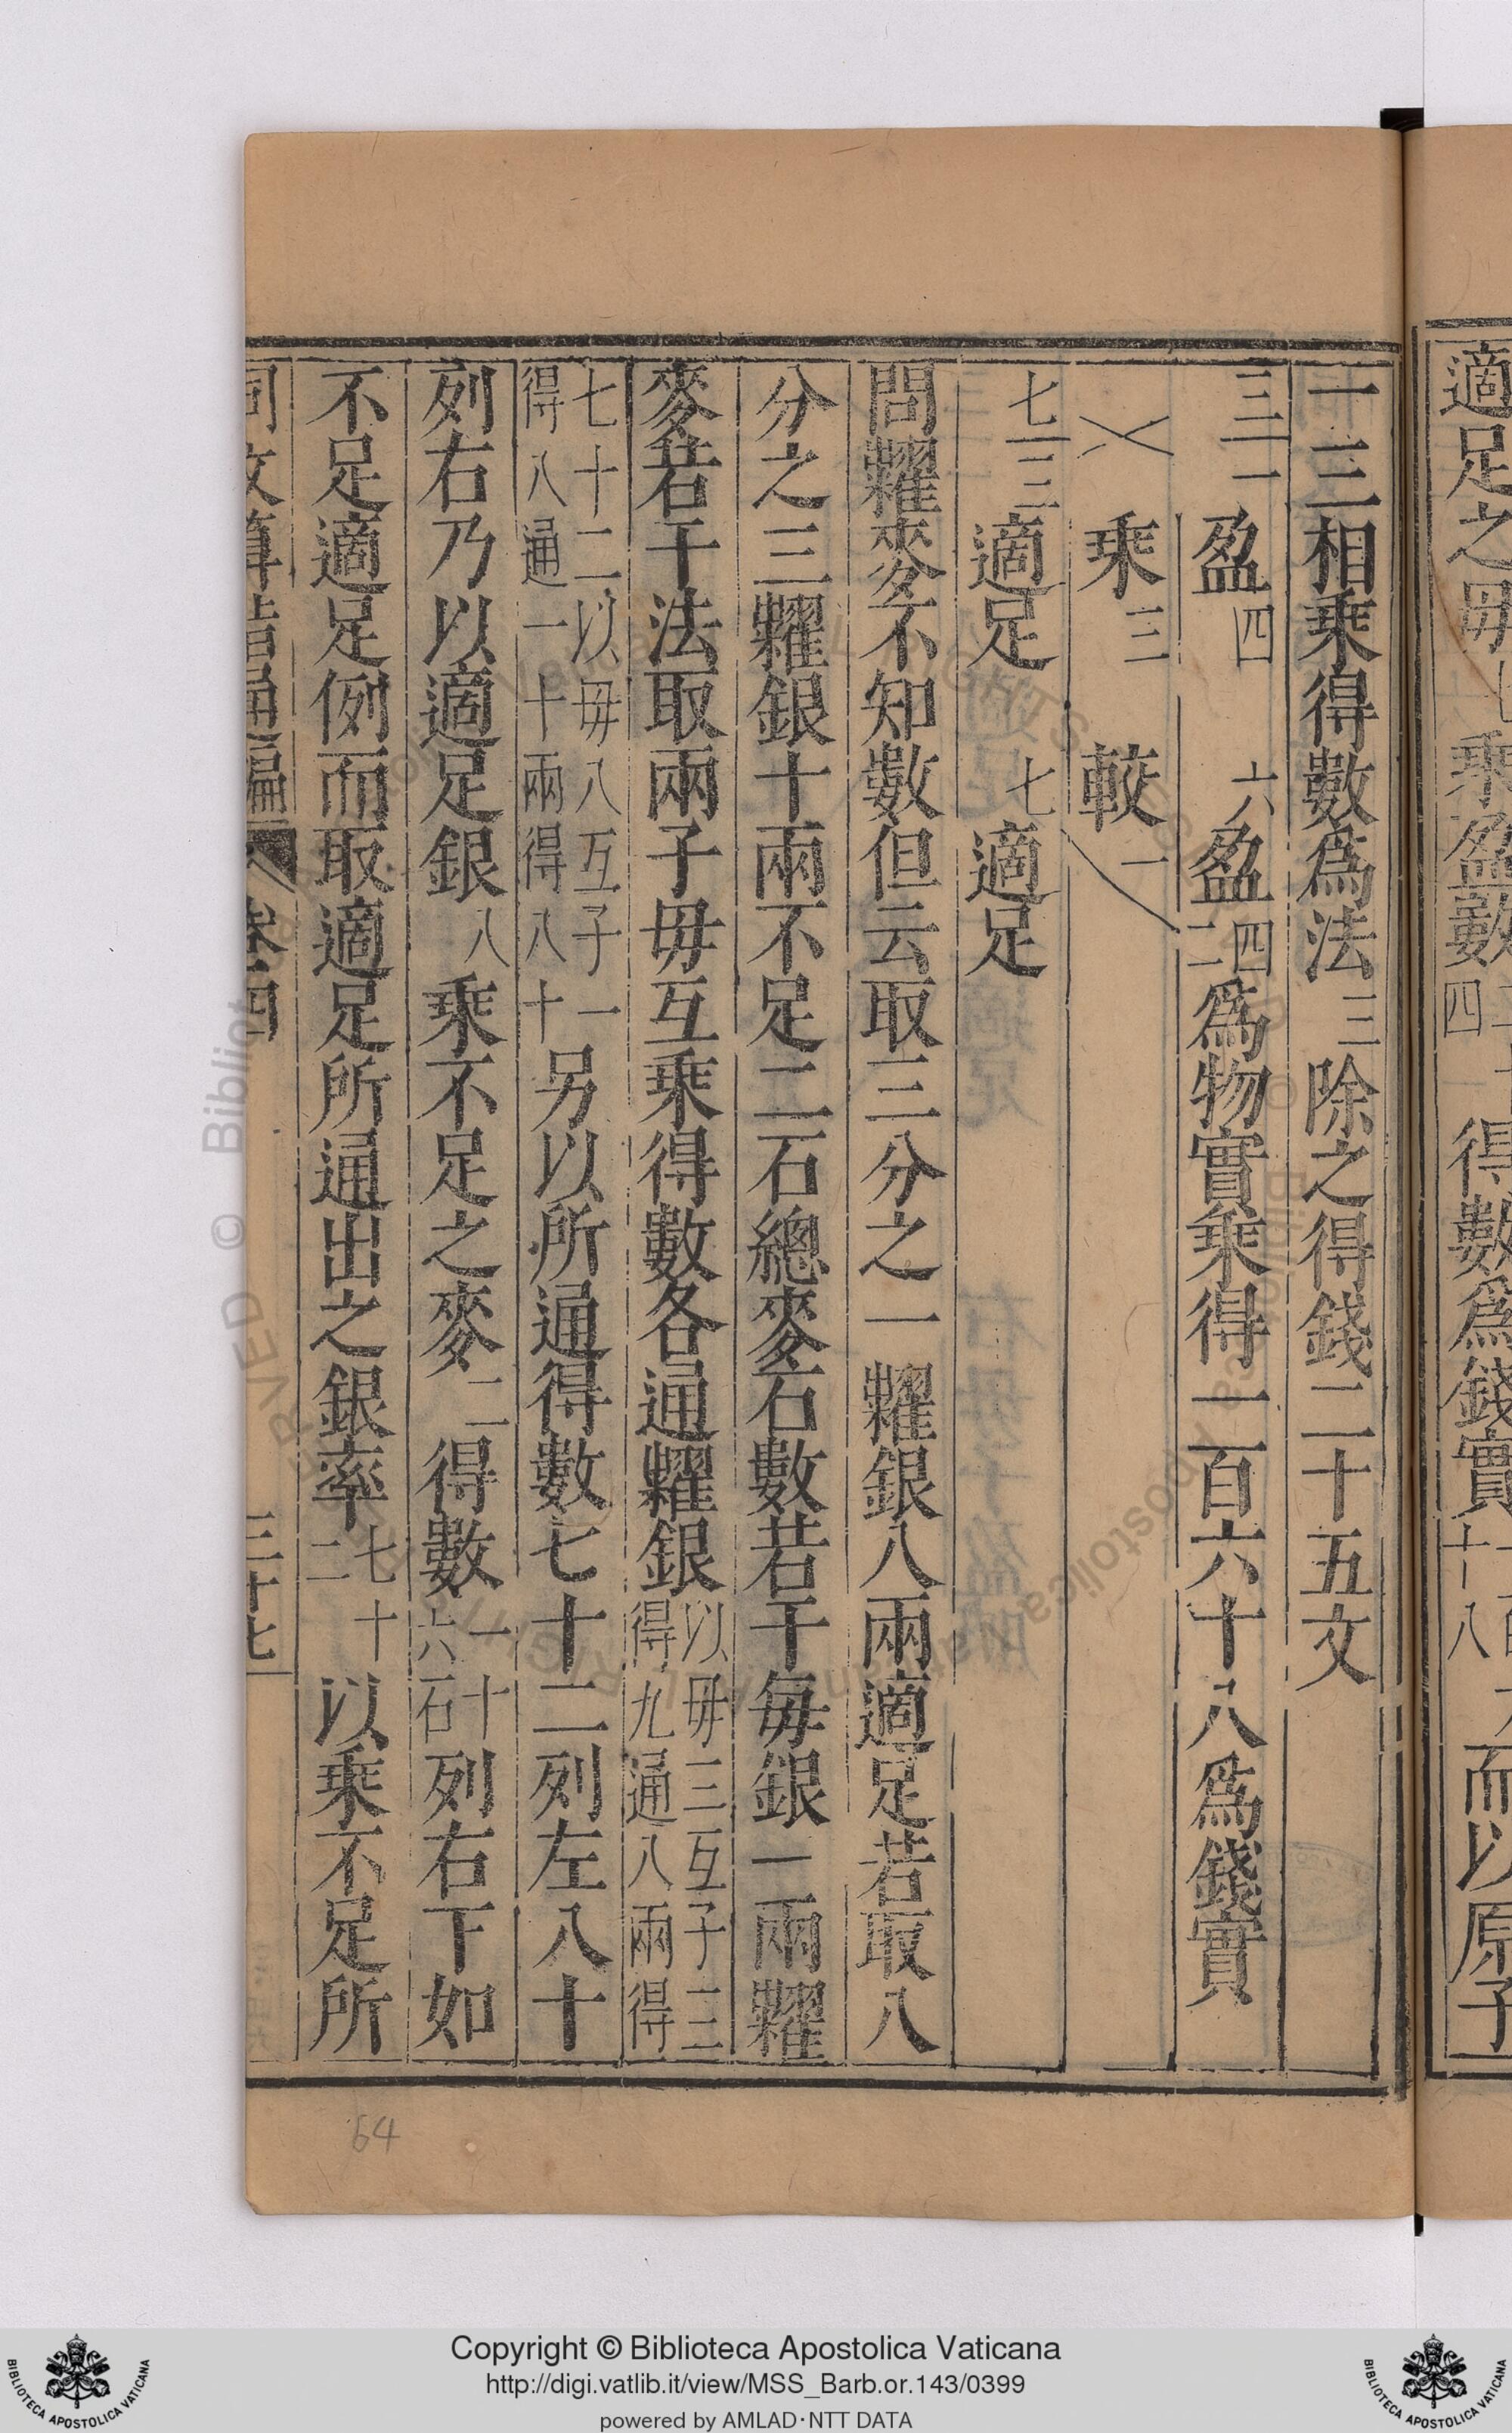 一三相乘得數爲法三除之得錢二十五文
三一盈四　六盈四二爲物實乘得一百六十八爲錢實
乘三　較一
七三適足　七適足
問糶麥不知數但云取三分之一糶銀八兩適足若取八
分之三糶銀十兩不足二石總麥石數若干每銀一兩糶
麥若干法取兩子毋互乘得數各通糶銀以毋三互子三得九通八兩得
七十二以毋八互子一得八通一十兩得八十另以所通得數七十二列左八十
列右乃以適足銀八乘不足之麥二得數一十六石列右下如
不足適足例而取適足所通出之銀率七十二以乘不足所
同文算指通編　卷四　三十七
適足之毋七乘盈數
得數爲錢實
而以原子
64
Copyright © Biblioteca Apostolica Vaticana
http://digi.vatlib.it/view/MSS_Barb.or.143/0399
powered by AMLAD·NTT DATA
BIBLIOTECA APOSTOLICA VATICANA
BIBLIOTECA APOSTOLICA VATICANA